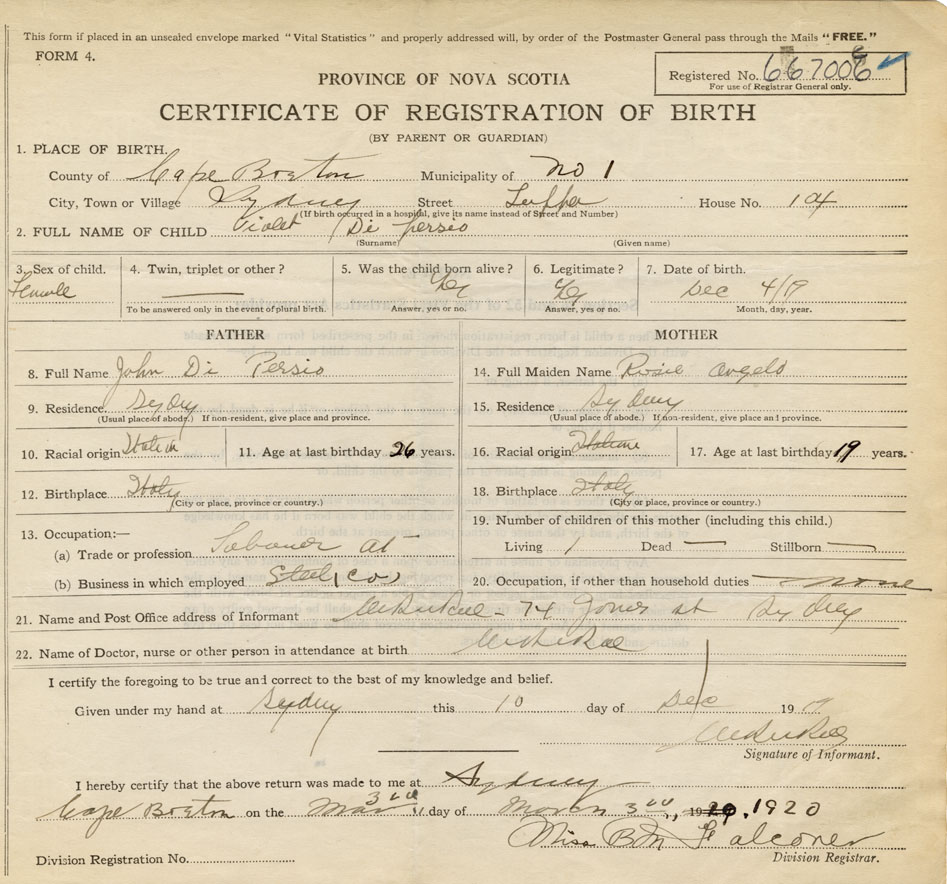 This form if placed in an unsealed envelope marked "Vital Statistics" and properly addressed will, by order of the Postmaster General pass through the Mails "FREE."
FORM 4.
Registered No. 667006
For use of Registrar General only.
PROVINCE OF NOVA SCOTIA
CERTIFICATE OF REGISTRATION OF BIRTH
(BY PARENT OR GUARDIAN)
1. PLACE OF BIRTH.
County of Cape Breton Municipality of No 1
City, Town or Village Sydney Street House No. 104
(If birth occurred in a hospital, give its name instead of Street and Number)
2. FULL NAME OF CHILD Violet Di Persio
(Surname) (Given name)
3. Sex of child. 4. Twin, triplet or other? 5. Was the child born alive? 6. Legitimate? 7. Date of birth.
Female — Yes Yes Dec 4/19
To be answered only in the event of plural birth. Answer, yes or no. Answer, yes or no. Month, day, year.
FATHER MOTHER
8. Full Name John Di Persio 14. Full Maiden Name Rosie Angelo
9. Residence Sydney 15. Residence Sydney
(Usual place of abode.) If non-resident, give place and province. (Usual place of abode.) If non-resident, give place and province.
10. Racial origin Italian 11. Age at last birthday 26 years. 16. Racial origin Italian 17. Age at last birthday 19 years.
12. Birthplace Italy 18. Birthplace Italy
(City or place, province or country.) (City or place, province or country.)
13. Occupation:— 19. Number of children of this mother (including this child.)
(a) Trade or profession Labourer at Living 1 Dead — Stillborn —
(b) Business in which employed Steel Co 20. Occupation, if other than household duties none
21. Name and Post Office address of Informant - 74 st Sydney
22. Name of Doctor, nurse or other person in attendance at birth
I certify the foregoing to be true and correct to the best of my knowledge and belief.
Given under my hand at Sydney this 10 day of Dec 19
Signature of Informant.
I hereby certify that the above return was made to me at Sydney
Cape Breton on the 3rd day of March 3rd, 19 1920
Miss B M Falconer
Division Registration No. Division Registrar.